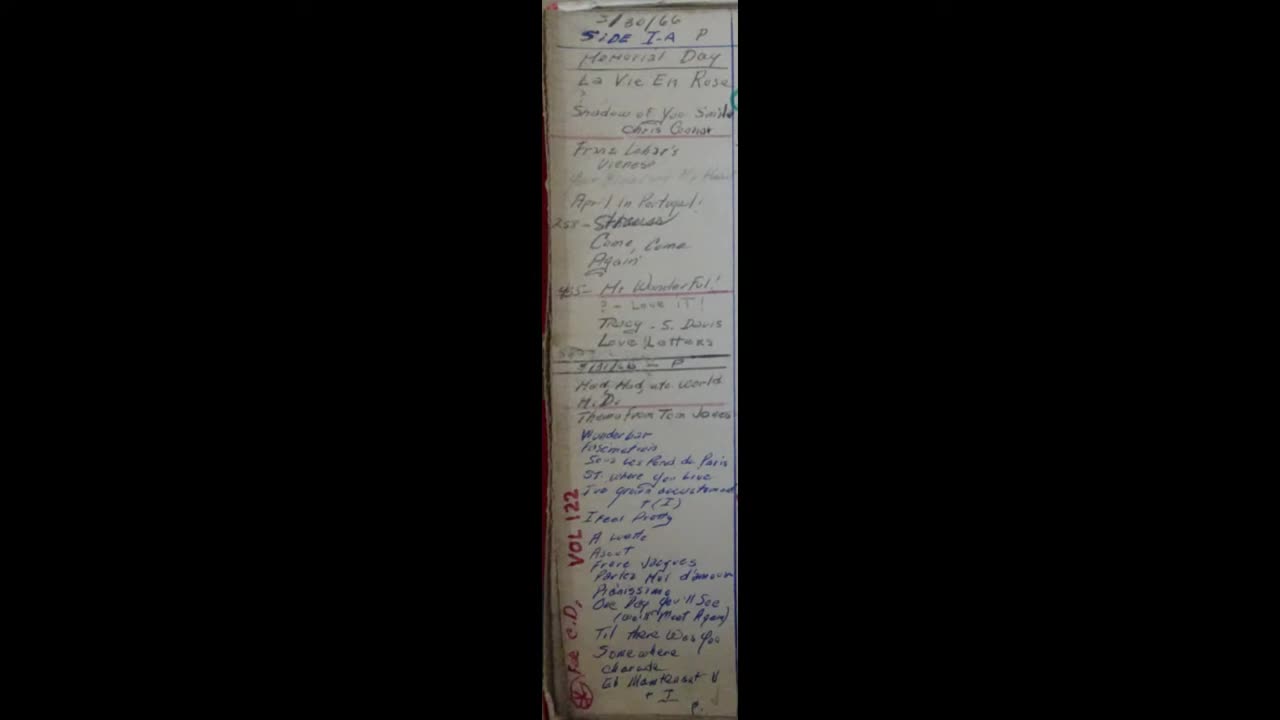 5/30/66
SIDE I-A P
Memorial Day
La Vie En Rose
?
Shadow of Your Smile
Chris Connor
Franz Lehar's
April in Portugal!
258 - Strauss
Come, Come
Again
455- Mr Wonderful!
? - Love iT!
Tracy - S. Davis
Love Letters
5/31/66 - P
Mad, Mad, etc World
M.D.
Theme From Tom Jones
Wunderbar
Sous Les Ponds de Paris
ST. where you Live
I've grown accustomed
+ (I)
I Feel Pretty
A waltz
Ascot
Frere Jacques
Parlez Moi d'amour
Pianissimo
One Day you'll See
(we'll Meet Again)
Til there Was You
Somewhere
charade
Et Maintenant V
+ I
P.
FOR C.D. VOL 122